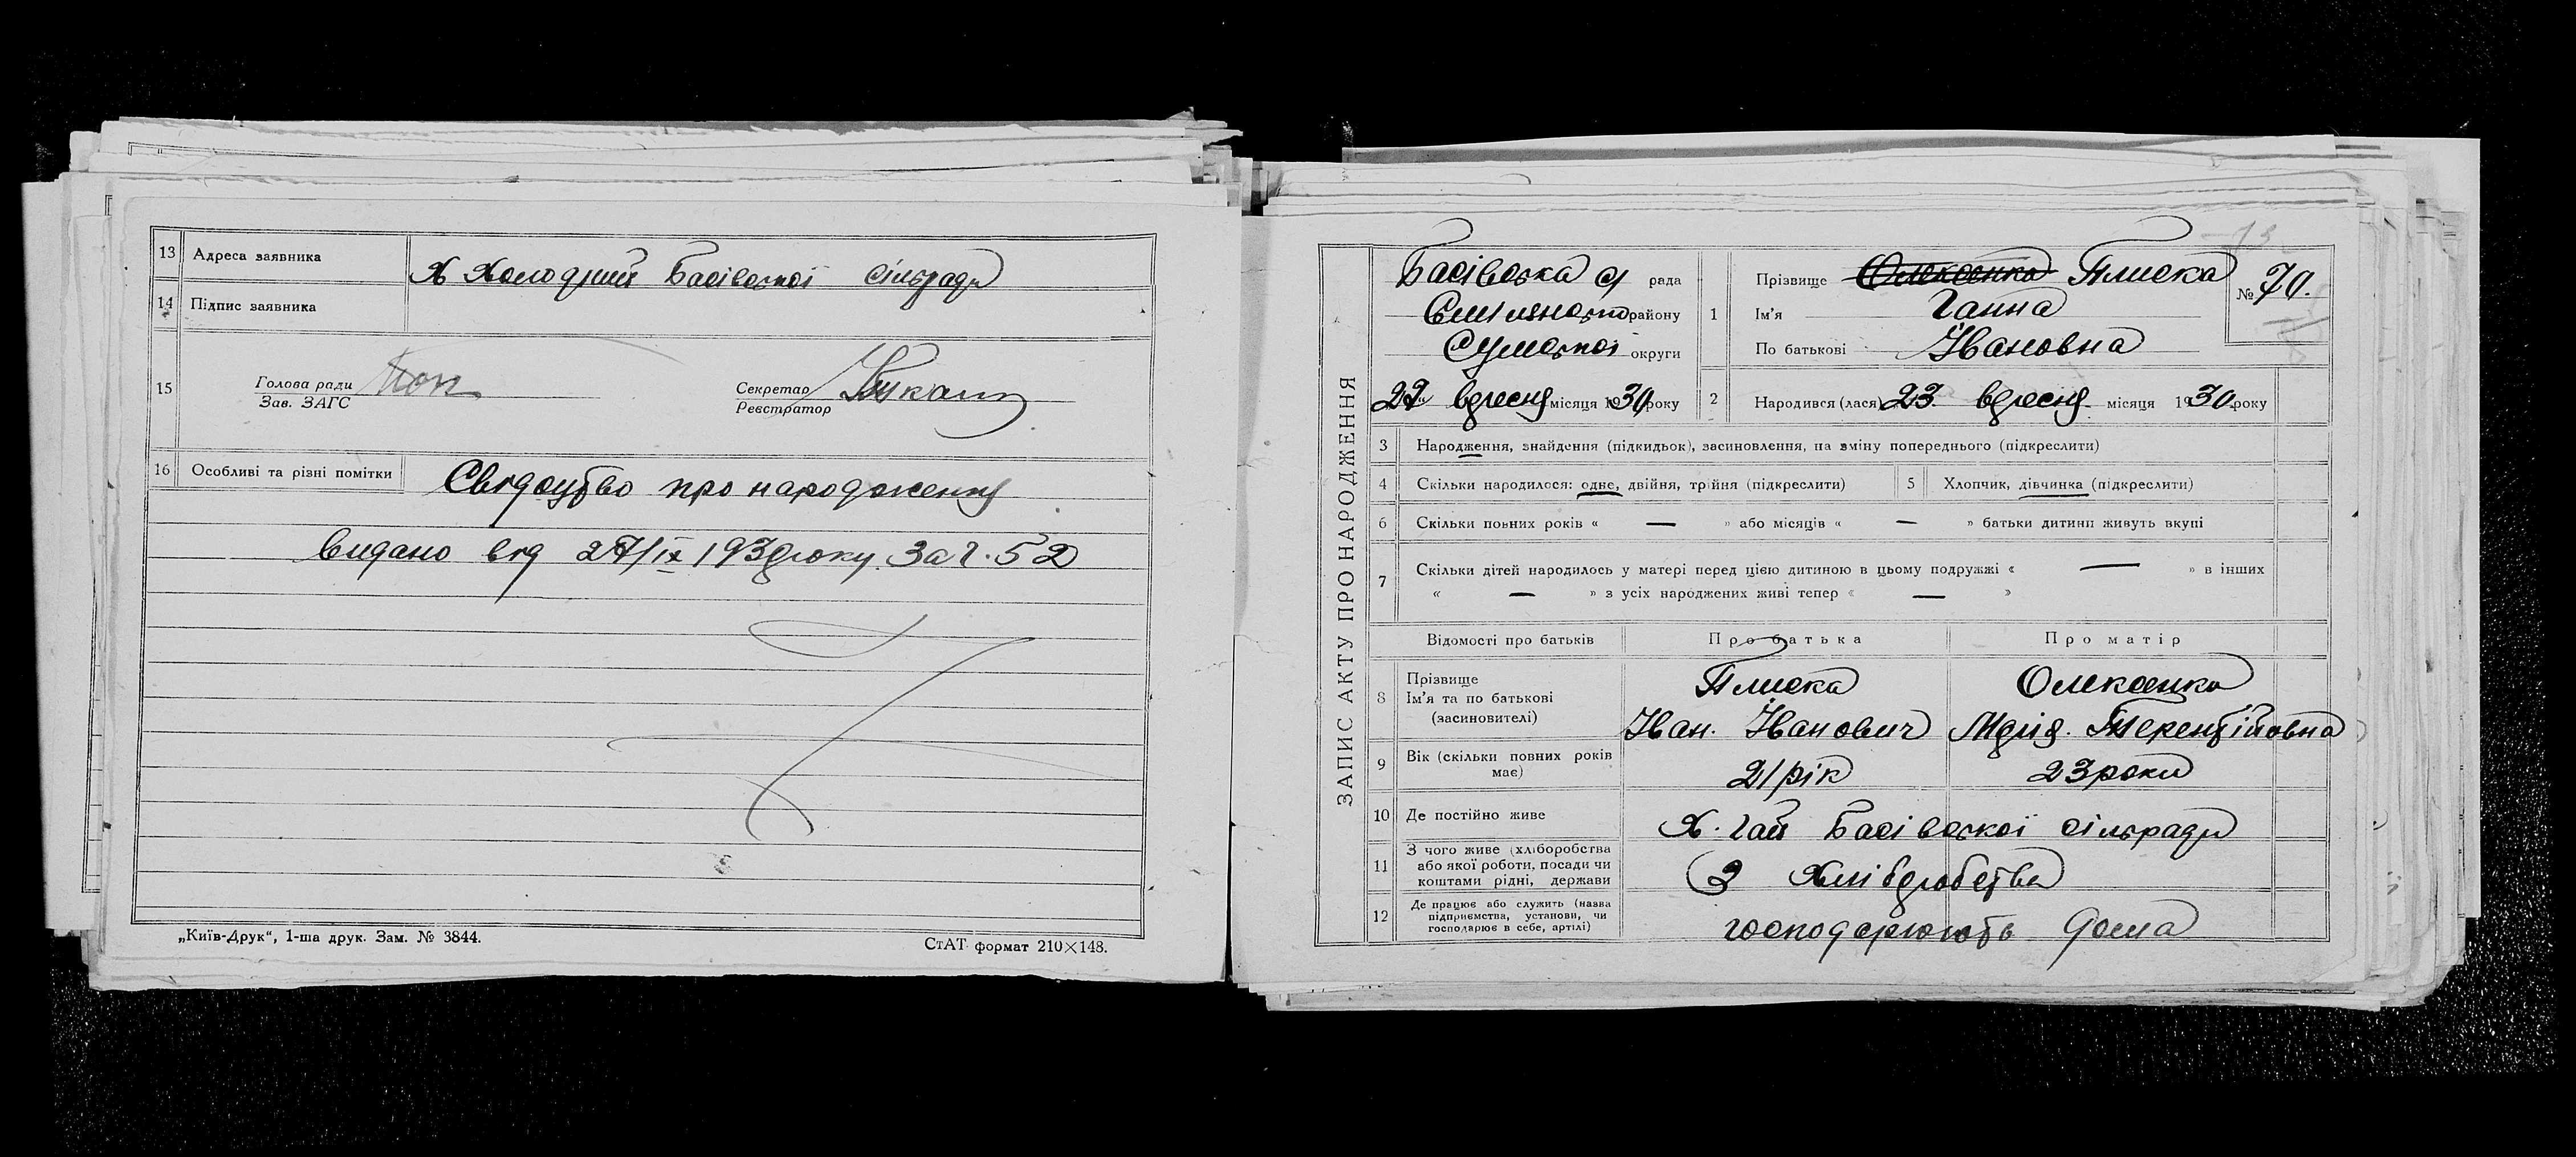 13 Адреса заявника Х Холодний Басівської сільради
14 Підпис заявника
15 Голова ради
Зав. ЗАГС
Секретар
Реєстратор
16 Особливі та різні помітки Свідоцтво про народження
видано від 27/ІХ 1930 року за ч. 52
„Київ-Друк“, 1-ша друк. Зам. № 3844.
СтАТ формат 210×148.
ЗАПИС АКТУ ПРО НАРОДЖЕННЯ
Басівська с/ рада
району
Сумської округи
27 вересня місяця 1930 року
1 Прізвище Олексенко Плиска
Ім'я Ганна
По батькові Івановна
№ 70.
2 Народився (лася) 23 вересня місяця 1930 року
3 Народження, знайдення (підкидьок), засиновлення, на зміну попереднього (підкреслити)
4 Скільки народилося: одне, двійня, трійня (підкреслити)
5 Хлопчик, дівчинка (підкреслити)
6 Скільки повних років « — » або місяців « — » батьки дитини живуть вкупі
7 Скільки дітей народилось у матері перед цією дитиною в цьому подружжі « — » в інших
« — » з усіх народжених живі тепер « — »
Відомості про батьків Про батька Про матір
8 Прізвище Плиска Олексенко
Ім'я та по батькові Іван Іванович Марія Терентіївна
(засновителі)
9 Вік (скільки повних років має) 21 рік 23 роки
10 Де постійно живе Х. Гай Басівської сільради
11 З чого живе (хліборобства
або якої роботи, посади чи
коштами рідні, держави З хліборобства
12 Де працює або служить (назва
підприємства, установи, чи
господарює в себе, артілі) господарюють дома